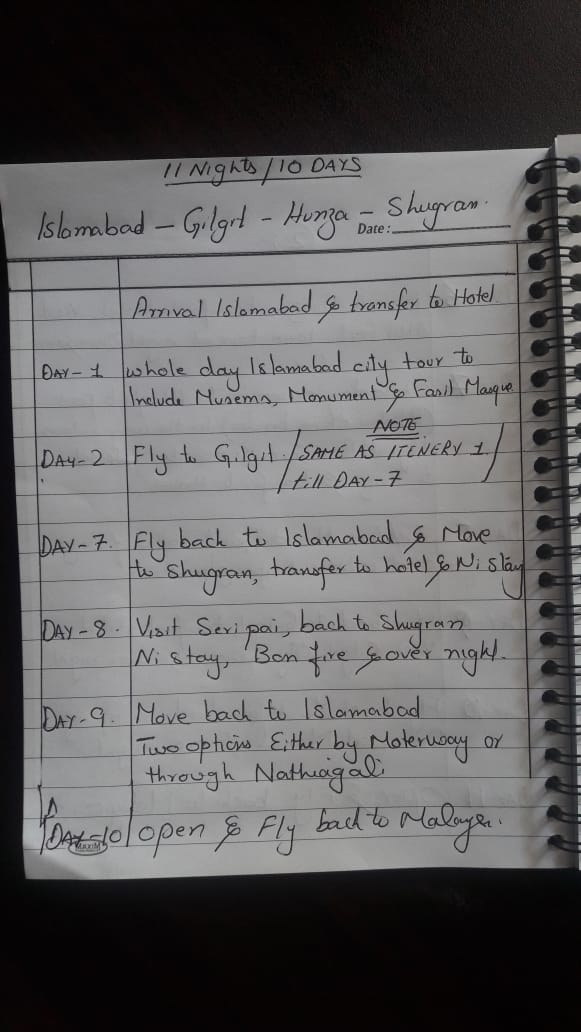 11 Nights / 10 DAYS
Islamabad - Gilgit - Hunza - Shugran.
Date:
Arrival Islamabad & transfer to Hotel
DAY-1 whole day Islamabad city tour to
Include Musems, Monument & Fasil Masque
DAY-2 Fly to Gilgit. / NOTE
SAME AS ITENERY 1 /
till DAY-7
DAY-7. Fly back to Islamabad & Move
to Shugran, transfer to hotel & Ni stay
DAY-8. Visit Seri pai, bach to Shugran
Ni stay, Bon fire & over night.
DAY-9. Move back to Islamabad
Two options Either by Moterway or
through Nathiagali
DAY-10 open & Fly back to
MAXIM